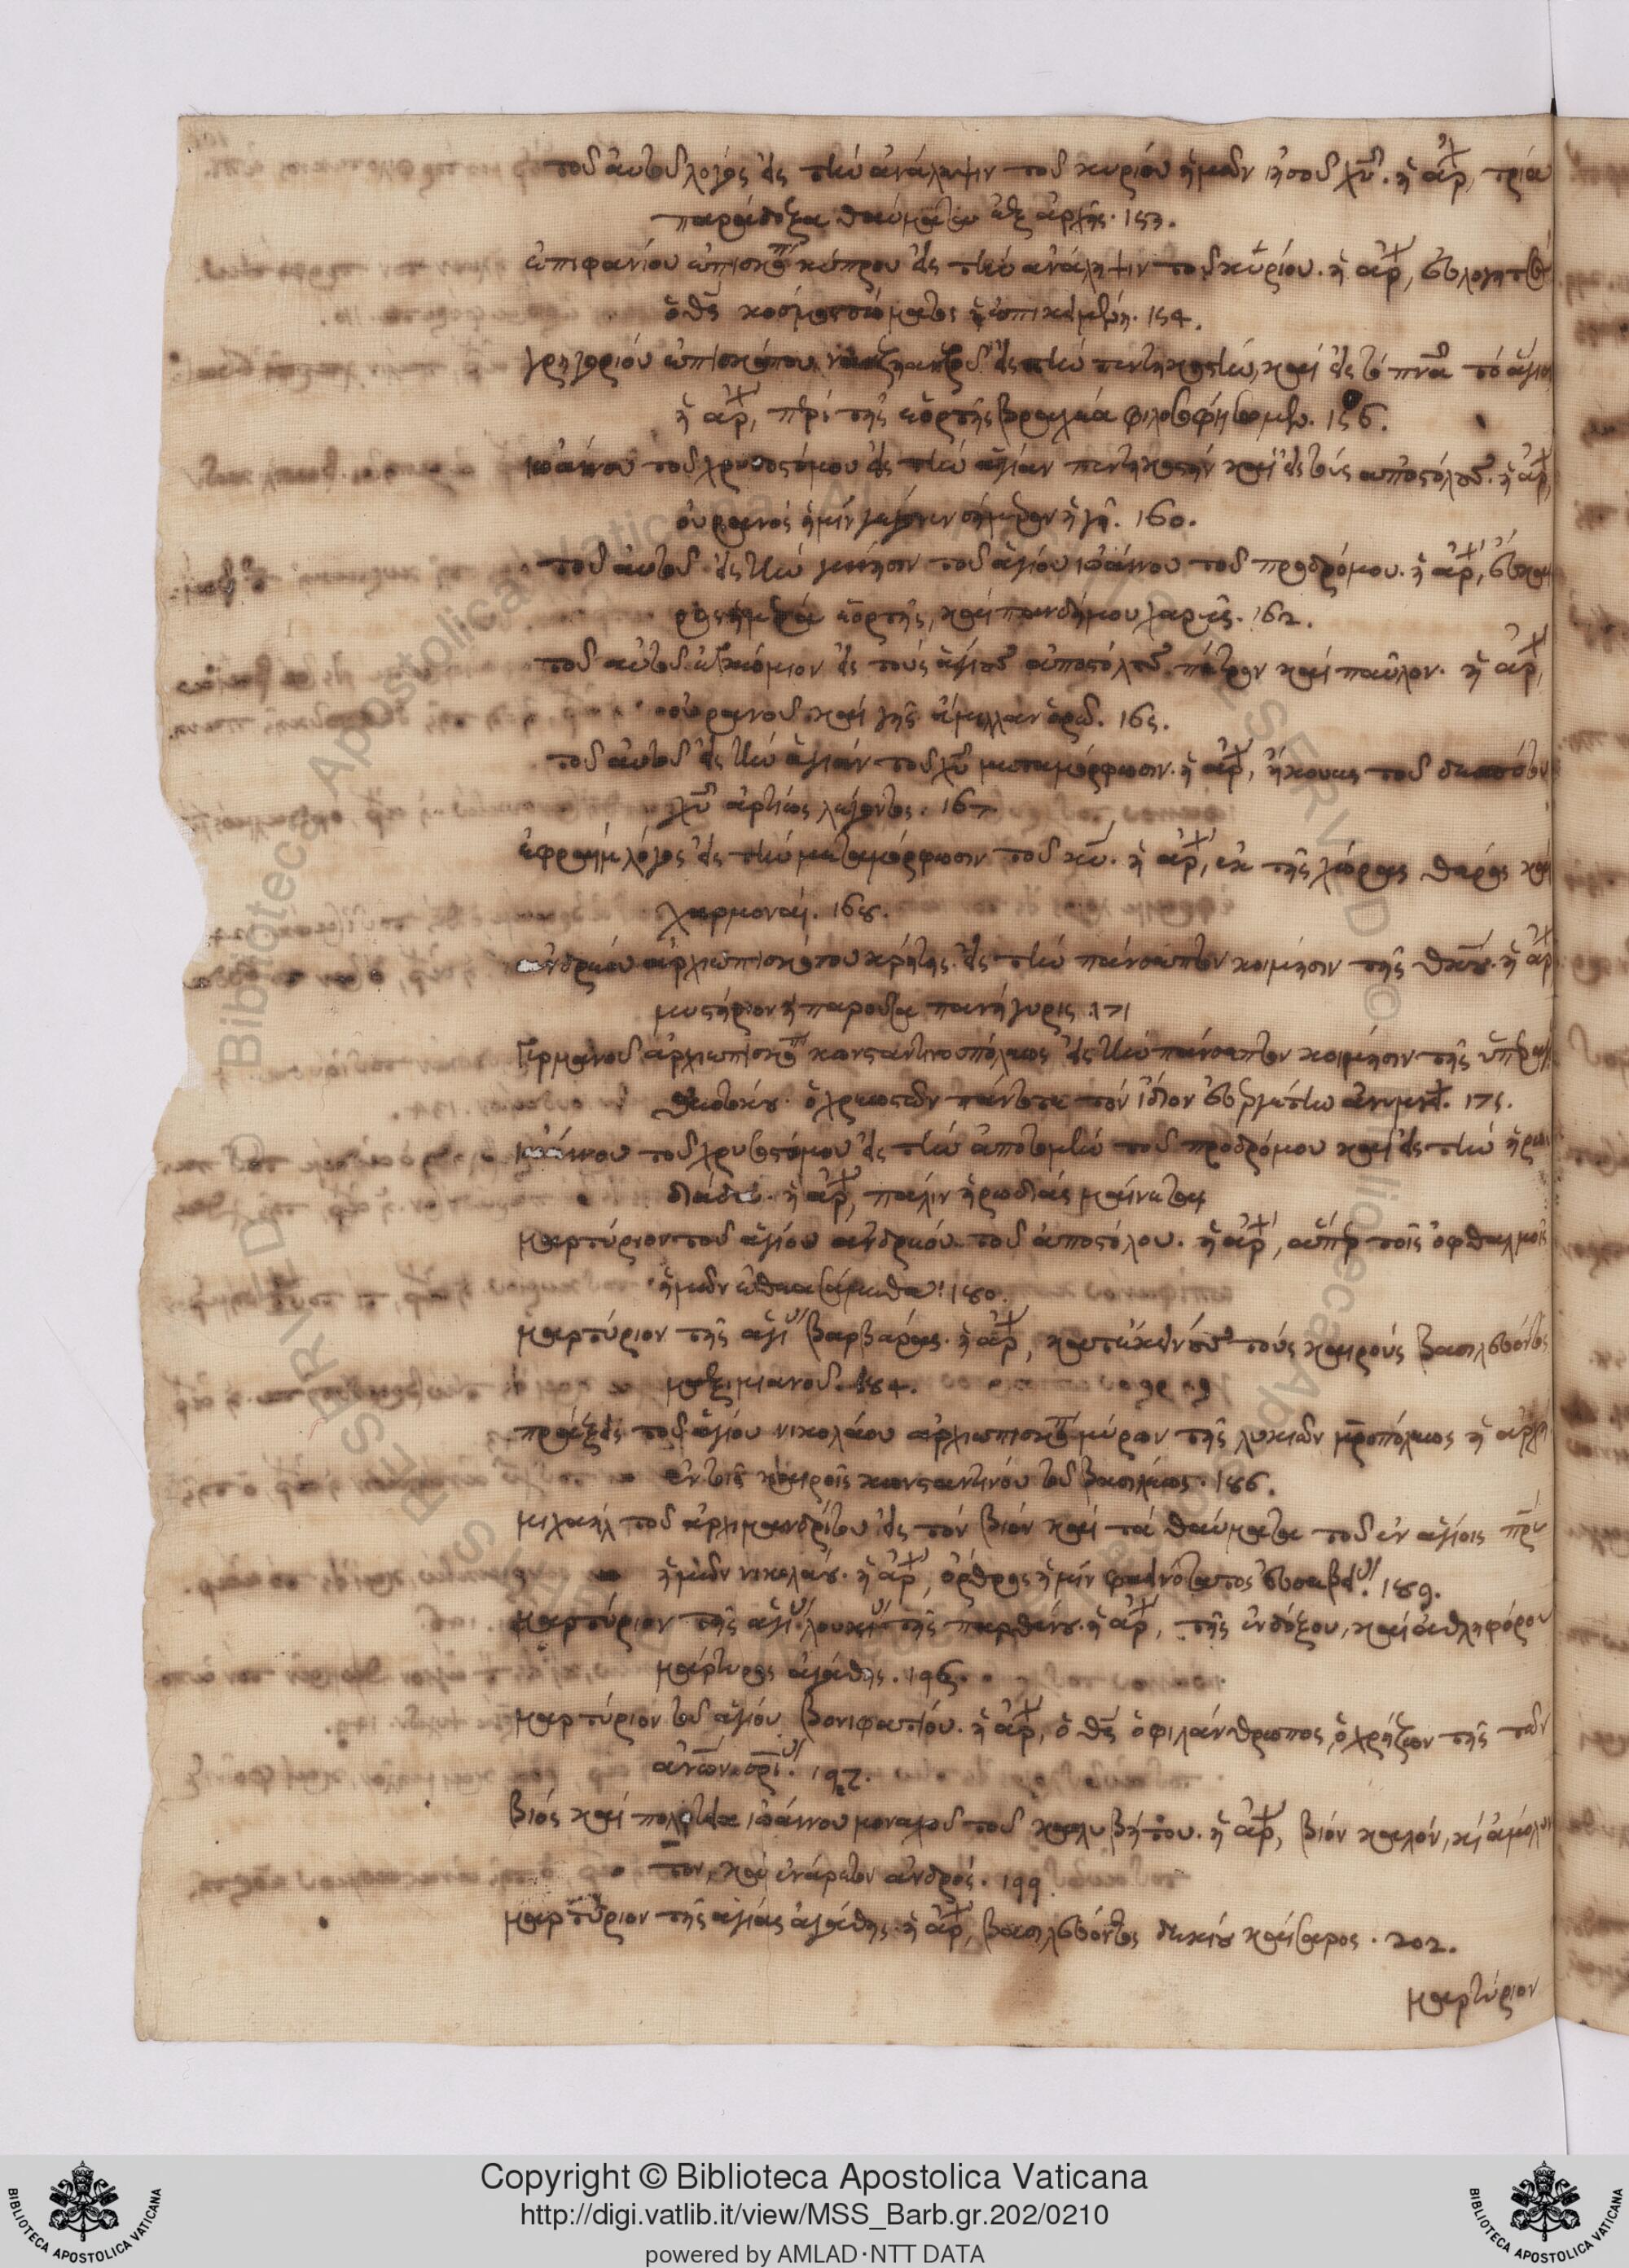 τοῦ αὐτοῦ λόγος εἰς τὴν ἀνάληψιν τοῦ κυρίου ἡμῶν ἰησοῦ χῦ. ἡ ἀρχ, τρία
παράδοξα θαύματα ἐξ ἀρχῆς. 153.
ἐπιφανίου ἐπισκόπ κύπρου εἰς τὴν ἀνάληψιν τοῦ κυρίου. ἡ ἀρχ, εὐλογητὸς
ὁ θς κόσμος σώματος ἡ ἐπικειμένη. 154.
γρηγορίου ἐπισκόπου ναζηανζοῦ εἰς τὴν πεντηκοστὴν, καὶ εἰς τὸ πνα τὸ ἅγιον
ἡ ἀρχ, περὶ τῆς ἑορτῆς βραχέα φιλοσοφήσωμεν. 156.
ἰωάννου τοῦ χρυσοστόμου εἰς τὴν ἁγίαν πεντηκοστήν καὶ εἰς τοὺς ἀποστόλους. ἡ ἀρχ,
οὐρανός ἡμῖν γέγονεν σήμερον ἡ γῆ. 160.
τοῦ αὐτοῦ εἰς τὴν γέννησιν τοῦ ἁγίου ἰωάννου τοῦ προδρόμου. ἡ ἀρχ, εὔκαι
ρος ἡμέρα ἑορτῆς, καὶ πανδήμου χαρᾶς. 162.
τοῦ αὐτοῦ ἐγκώμιον εἰς τοὺς ἁγίους ἀποστόλους πέτρον καὶ παῦλον. ἡ ἀρχ,
οὐρανοῦ καὶ γῆς ἅμιλλαν ὁρῶ. 165.
τοῦ αὐτοῦ εἰς τὴν ἁγίαν τοῦ χῦ μεταμόρφωσιν. ἡ ἀρχ, ἤκουες τοῦ δεσπότου
χῦ ἀρτίως λέγοντος. 167
ἐφραῒμ λόγος εἰς τὴν μεταμόρφωσιν τοῦ κυ. ἡ ἀρχ, ἐκ τῆς χώρας θέρος καὶ
χαρμοναί. 168.
ἀνδρέου ἀρχιεπισκόπου κρήτης εἰς τὴν πάνσεπτον κοίμησιν τῆς θκου. ἡ ἀρχ
μυστήριον ἡ παροῦσα πανήγυρις. 171
Γερμανοῦ ἀρχιεπισκόπ κωνσταντινουπόλεως εἰς τὴν πάνσεπτον κοίμησιν τῆς ὑπεραγ
θεοτόκου. ὁ χρεωστῶν πάντοτε τὸν ἴδιον εὐεργέτην ἀνυμνεῖ. 175.
ἰωάννου τοῦ χρυσοστόμου εἰς τὴν ἀποτομὴν τοῦ προδρόμου καὶ εἰς τὴν ἡρω
διάδα. ἡ ἀρχ, πάλιν ἡρωδιάς μαίνεται
μαρτύριον τοῦ ἁγίου ἀνδρέου τοῦ ἀποστόλου. ἡ ἀρχ, ἅπερ τοῖς ὀφθαλμοῖς
ἡμῶν ἐθεασάμεθα. 180.
μαρτύριον τῆς ἁγί βαρβάρας. ἡ ἀρχ, κατ' ἐκείνους τοὺς καιρούς βασιλεύοντος
μαξιμιανοῦ. 184.
πράξεις τοῦ ἁγίου νικολάου ἀρχιεπισκόπ μύρων τῆς λυκιῶν μροπόλεως ἡ ἀρχ
ἐν τοῖς καιροῖς κωνσταντίνου τοῦ βασιλέως. 186.
μιχαὴλ τοῦ ἀρχιμανδρίτου εἰς τὸν βίον καὶ τὰ θαύματα τοῦ ἐν ἁγίοις πρς
ἡμῶν νικολάου. ἡ ἀρχ, ὄρθρος ἡμῖν φαεινότατος εὐσεβεί. 189.
μαρτύριον τῆς ἁγί λουκί τῆς παρθένου. ἡ ἀρχ, τῆς ἐνδόξου, καὶ ἀθληφόρου
μάρτυρος ἀγάθης. 196.
μαρτύριον τοῦ ἁγίου βονιφατίου. ἡ ἀρχ, ὁ θς ὁ φιλάνθρωπος, ὁ χρήζων τῆς τῶν
ἀνων σρί. 197.
βίος καὶ πολιτεία ἰωάννου μοναχοῦ τοῦ καλυβήτου. ἡ ἀρχ, βίον καλόν, κὶ ἀμόλυν
τον, καὶ ἐνάρετον ἀνδρός. 199.
μαρτύριον τῆς ἁγίας ἀγάθης. ἡ ἀρχ, βασιλεύοντος δεκίου καίσαρος. 202.
μαρτύριον
Copyright © Biblioteca Apostolica Vaticana
http://digi.vatlib.it/view/MSS_Barb.gr.202/0210
powered by AMLAD·NTT DATA